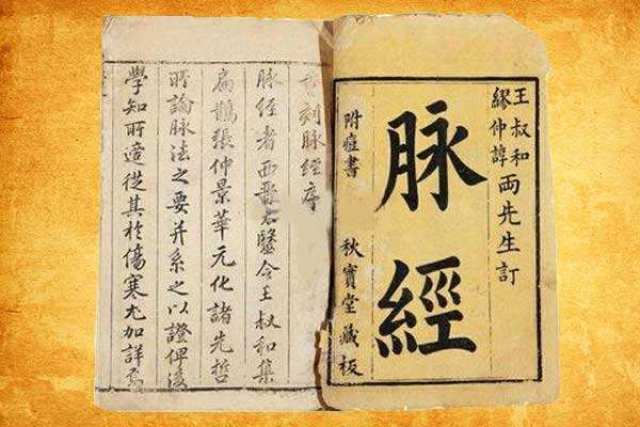 王叔和
繆仲諄
両先生訂
脉經
附痘書 秋實堂藏板
刻脉經序
脉經者西晉太醫令王叔和集
扁鵲張仲景華元化諸先哲
所論脉法之要并系之以證俾後
學知所適從其於傷寒尤加詳焉